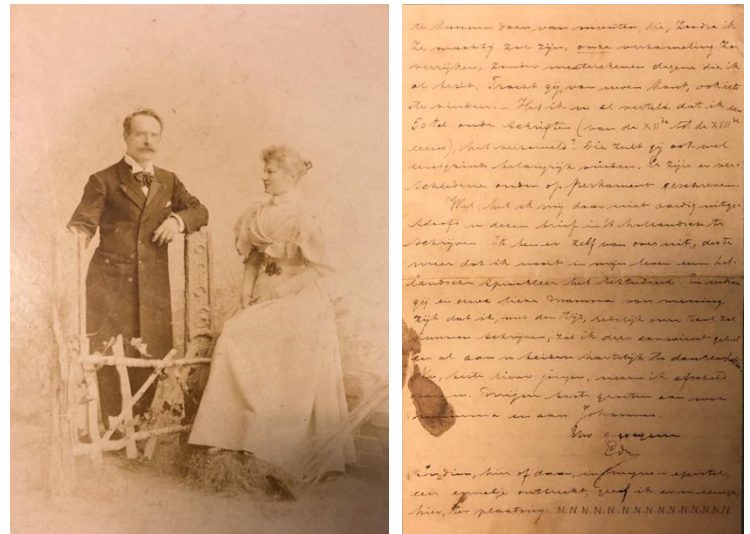 te kunnen doen van munten, die, zoodra ik
ze machtig zal zijn, onze verzameling zal
verrijken, zonder meeterekenen degene die ik
al bezit. Tracht gij, van uwen kant, ook iets
te vinden. Heb ik u al verteld dat ik een
50 tal oude schriften (van de XIIde tot de XVIIde
eeuw), heb verzameld? Die zult gij ook wel
eenigzinds belangrijk vinden. Er zijn er ver-
scheidene onder op perkament geschreven.
Wel, heb ik mij daar niet aardig uitge-
sloofd u dezen brief in 't hollandsch te
schrijven. Ik ben er zelf van over uit, des te
meer dat ik nooit in mijn leven een hol-
landsche spraakleer heb bestudeerd. Indien
gij en uwe lieve mamma van meening
zijt dat ik, met den tijd, redelijk uwe taal zal
kunnen schrijven, zal ik deze geheel
en al aan u beiden hartelijk te danken
beste lieve jongen, neem ik afscheid
van u. beste groeten aan uwe
mamma en aan Johannes.
Uw genegene
Edu
Indien, hier of daar, in mijnen epistel,
een ennetje ontbreekt, geef ik er eenige,
hier, ter plaatsing N.N.N.N.N.N.N.N.N.N.N.N.N